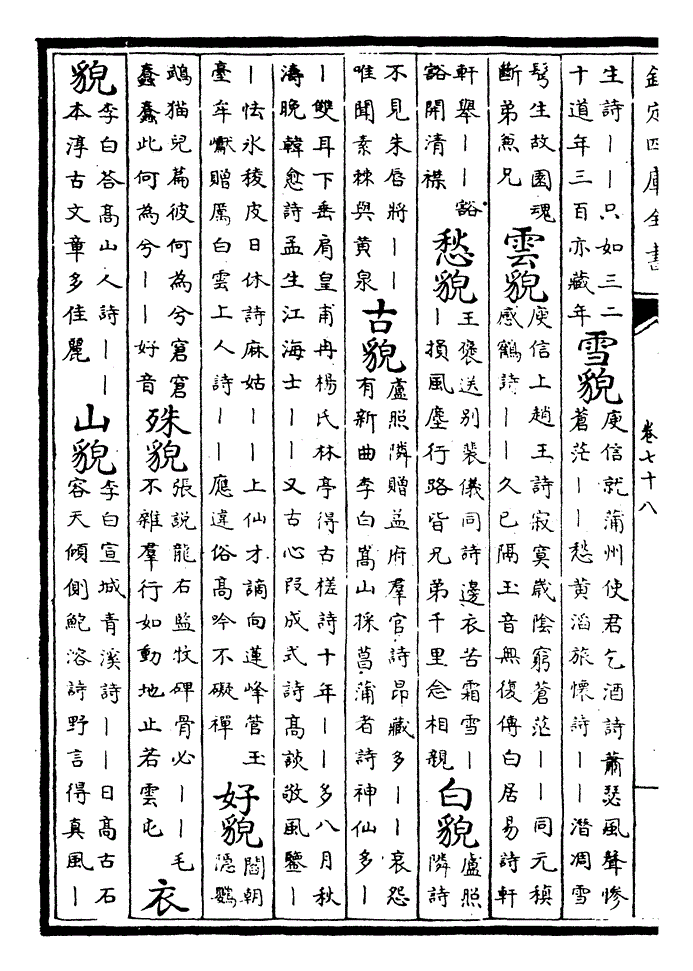 欽定四庫全書 卷七十八
生詩丨丨只如三二
十道年三百亦藏年
雪貌
庾信就蒲州使君乞酒詩蕭瑟風聲慘
蒼茫丨丨愁黃滔旅懷詩丨丨潛凋雪
髩生故園魂
斷弟兼兄
雲貌
庾信上趙王詩寂寞歲陰窮蒼茫丨丨同元稹
感鶴詩丨丨久已隔玉音無復傳白居易詩軒
軒舉丨丨豁
豁開清襟
愁貌
王褒送别裴儀同詩邊衣苦霜雪丨
丨損風塵行路皆兄弟千里念相親
白貌
盧照
隣詩
不見朱唇將丨丨
唯聞素棘與黃泉
古貌
盧照隣贈益府羣官詩昂藏多丨丨哀怨
有新曲李白嵩山採菖蒲者詩神仙多丨
丨雙耳下垂肩皇甫冉楊氏林亭得古槎詩十年丨丨多八月秋
濤晚韓愈詩孟生江海士丨丨又古心段成式詩高談敬風鑒丨
丨怯冰稜皮日休詩麻姑丨丨上仙才謫向蓮峰管玉
臺牟巘贈厲白雲上人詩丨丨應違俗高吟不礙禪
好貌
閻朝
隱鸚
鵡猫兒篇彼何為兮窘窘
蠢蠢此何為兮丨丨好音
殊貌
張說龍右監牧碑骨必丨丨毛
不雜羣行如動地止若雲屯
衣
貌
李白答高山人詩丨丨
本淳古文章多佳麗
山貌
李白宣城青溪詩丨丨日高古石
容天傾側鮑溶詩野言得真風丨